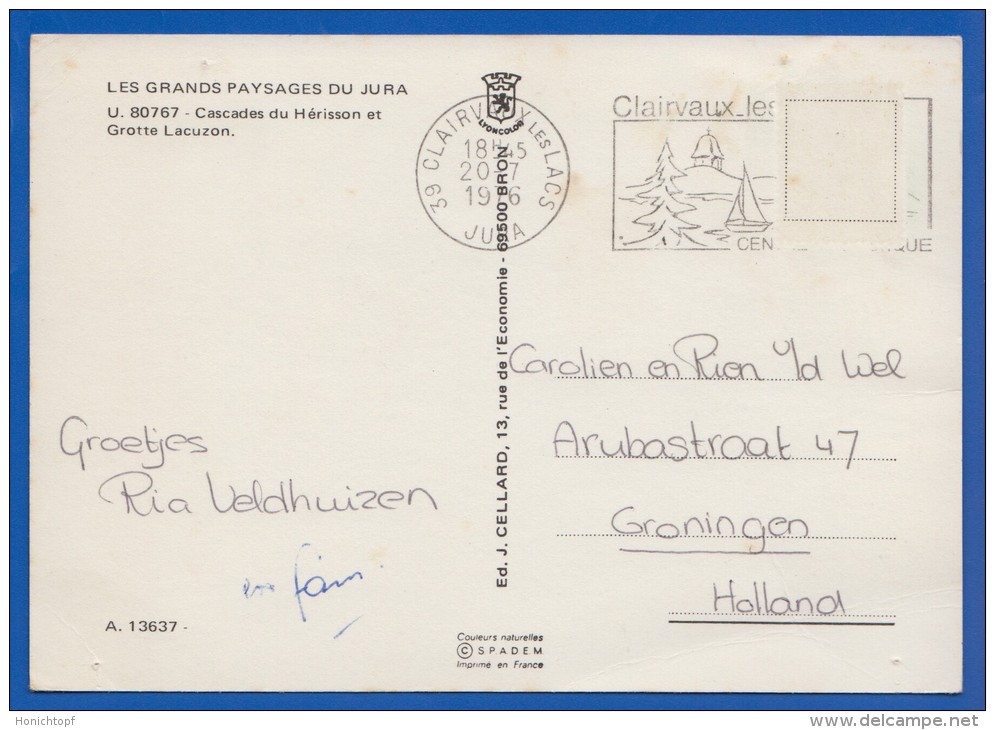 LES GRANDS PAYSAGES DU JURA
U. 80767 - Cascades du Hérisson et
Grotte Lacuzon.
LYONCOLOR
39 CLAIRVAUX LES LACS
18H45
20-7
1976
JURA
Clairvaux-les
Ed. J. CELLARD, 13, rue de l'Economie - 69500 BRON
Carolien en Rion v/d Wel
Arubastraat 47
Groningen
Holland
Groetjes
Ria Veldhuizen
en fam.
A. 13637 -
Couleurs naturelles
© SPADEM
Imprimé en France
Honichtopf
www.delcampe.net